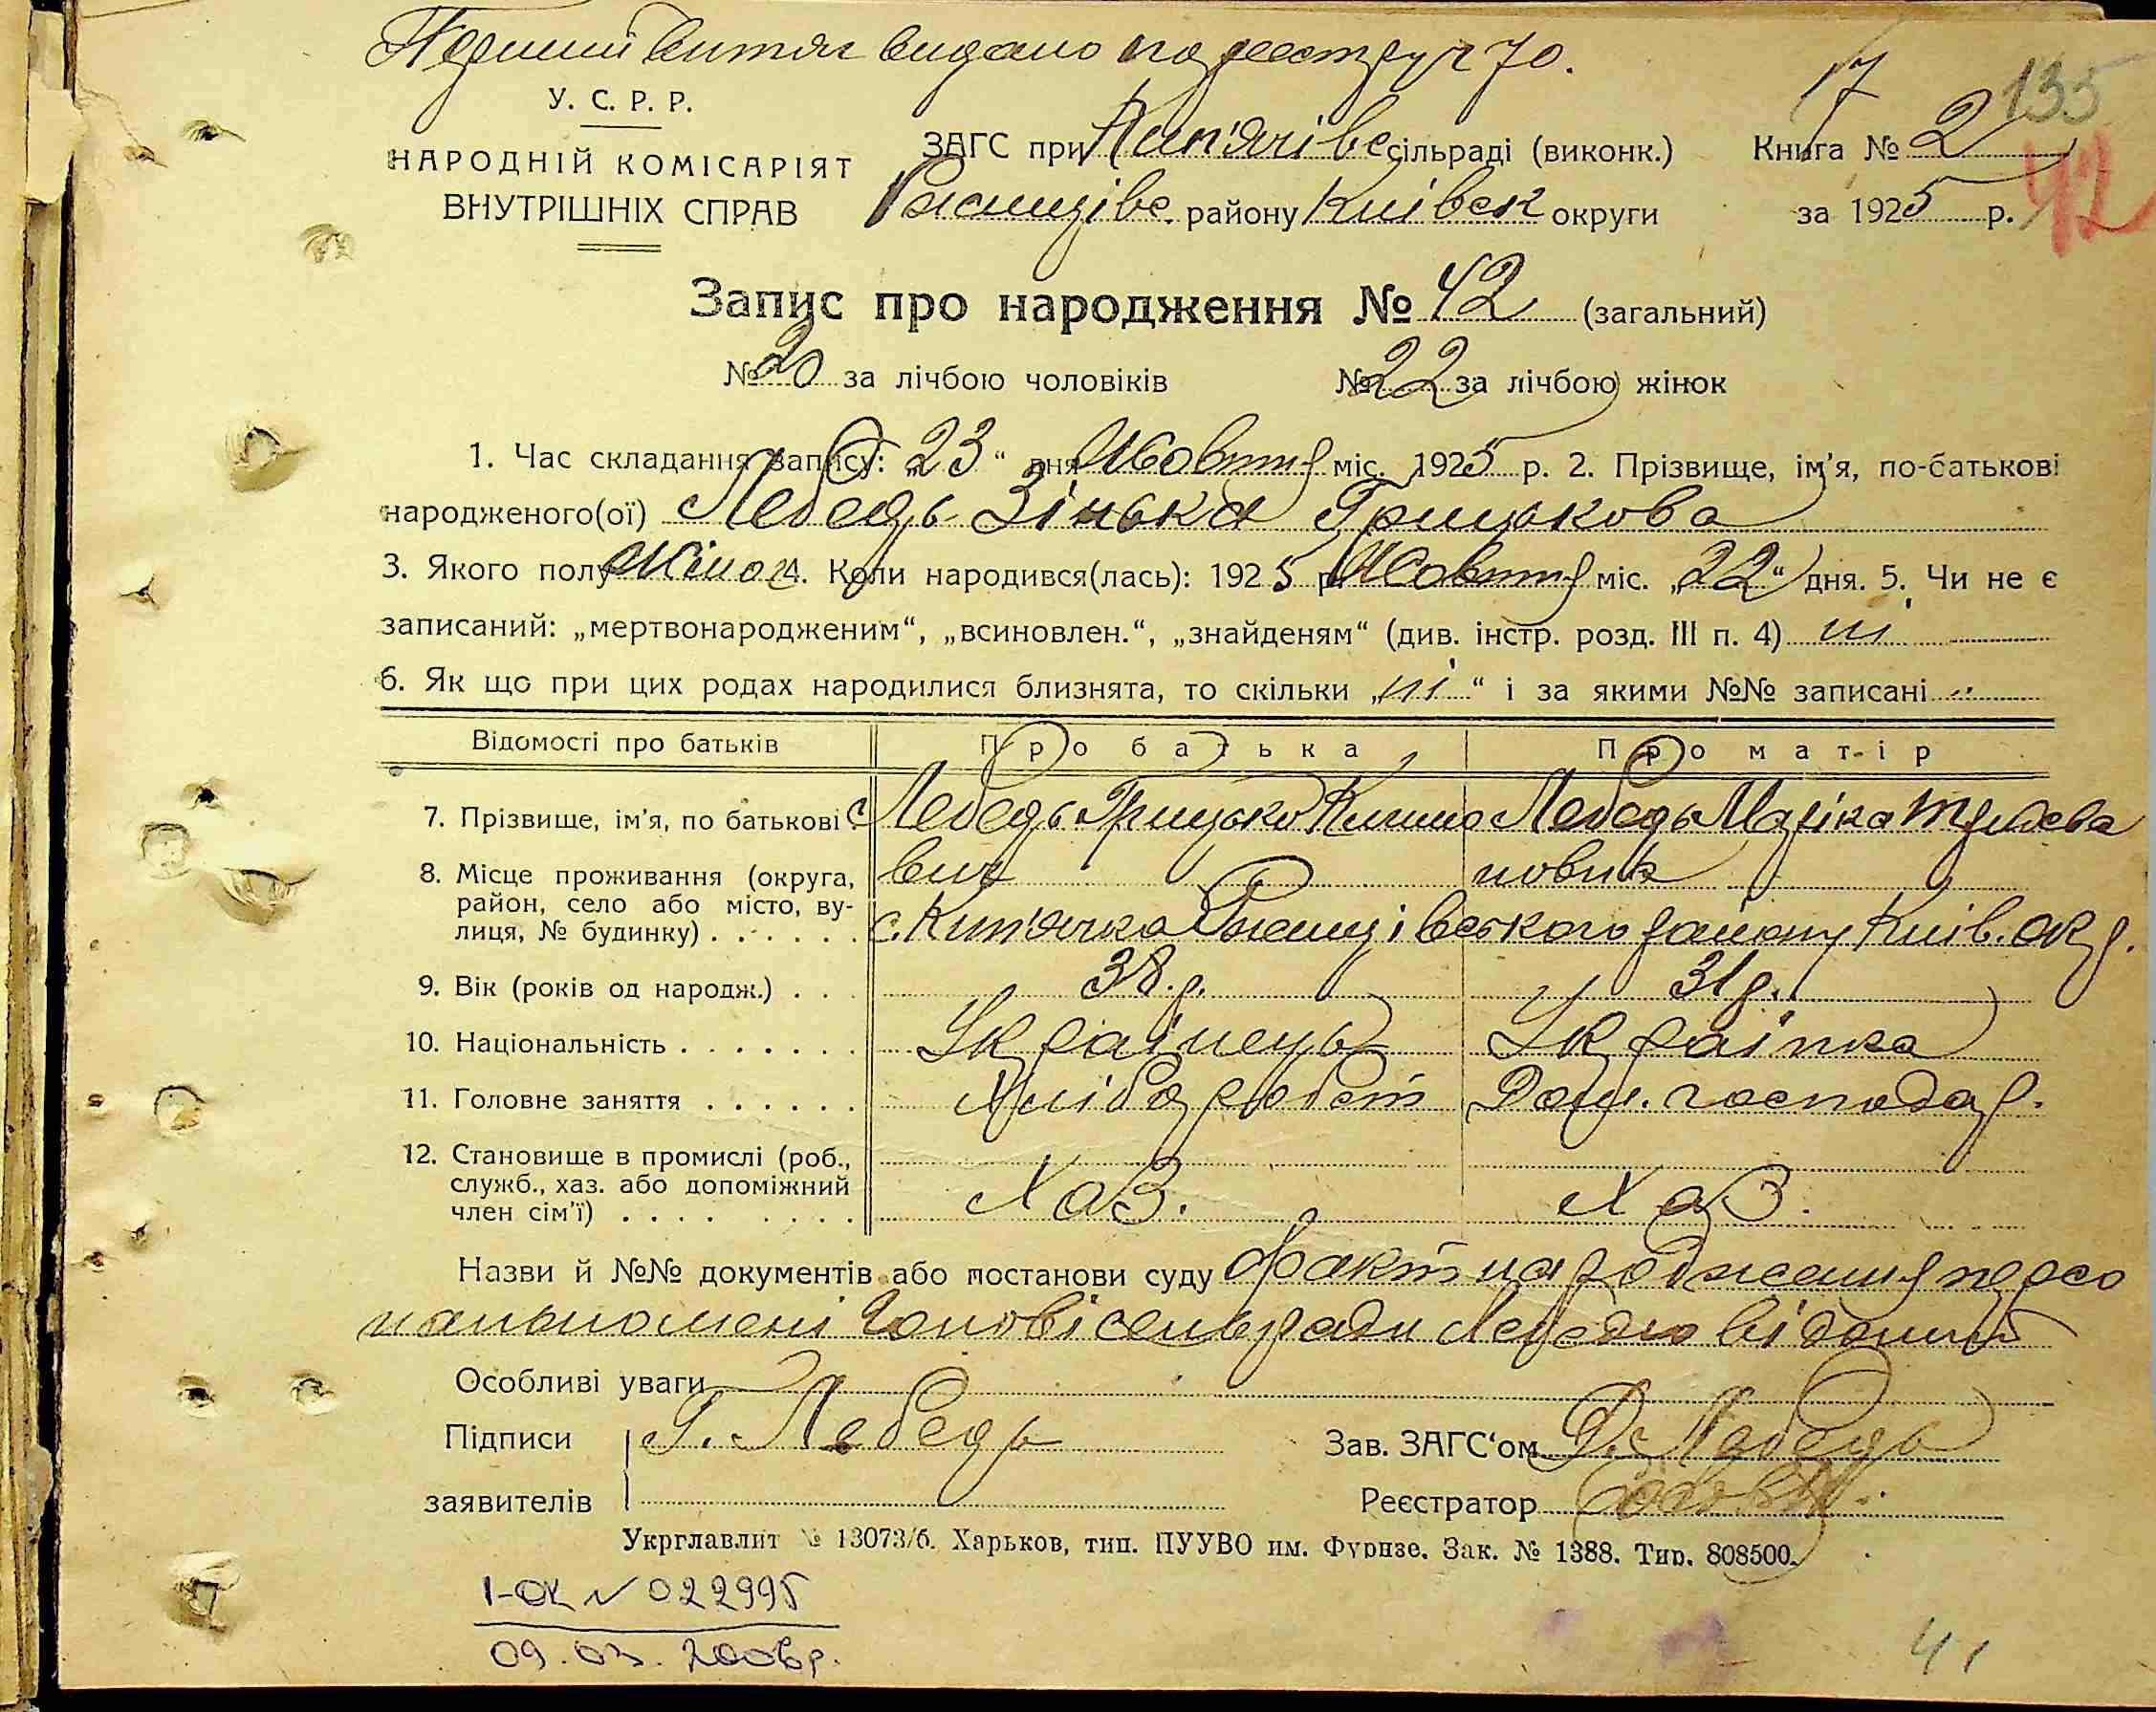 Перший витяг видано по реестру ч 70.
У. С. Р. Р.
НАРОДНІЙ КОМІСАРІЯТ
ВНУТРІШНІХ СПРАВ
ЗАГС при Кип'ячівс сільраді (виконк.)
Ржищівс. району Київськ округи
17 135
Книга № 2
за 1925 р. 42
Запис про народження № 42 (загальний)
№ 20 за лічбою чоловіків № 22 за лічбою жінок
1. Час складання запису: „23“ дня Жовтня міс. 1925 р. 2. Прізвище, ім'я, по-батькові
народженого(ої) Лебедь Зінька Грицькова
3. Якого полу Жіноч 4. Коли народився(лась): 1925 р. Жовтня міс. „22“ дня. 5. Чи не є
записаний: „мертвонародженим“, „всиновлен.“, „знайденям“ (див. інстр. розд. III п. 4) ні
6. Як що при цих родах народилися близнята, то скільки „ні“ і за якими №№ записані „
Відомості про батьків Про батька Про матір
7. Прізвище, ім'я, по батькові Лебедь Грицько Лебедь Маріка
вич новна
8. Місце проживання (округа,
район, село або місто, ву-
лиця, № будинку) . . . . . . с. Кип'ячка Ржищівського району Київ. окр.
9. Вік (років од народж.) . . . 38.р. 31р.
10. Національність . . . . . . . Українець Українка
11. Головне заняття . . . . . . Хлібороб Дом. господар.
12. Становище в промислі (роб.,
служб., хаз. або допоміжний
член сім'ї) . . . . . . . . Хаз. Хаз.
Назви й №№ документів або постанови суду Факт народження персо
нально мені Голові сельради Лебедю відомий
Особливі уваги
Підписи Г. Лебедь Зав. ЗАГС'ом Д. Лебедь
заявителів Реєстратор
Укрглавлит № 13073/б. Харьков, тип. ПУУВО им. Фрунзе. Зак. № 1388. Тир. 808500.
І-ОК № 022995
09.03.2006р.
41